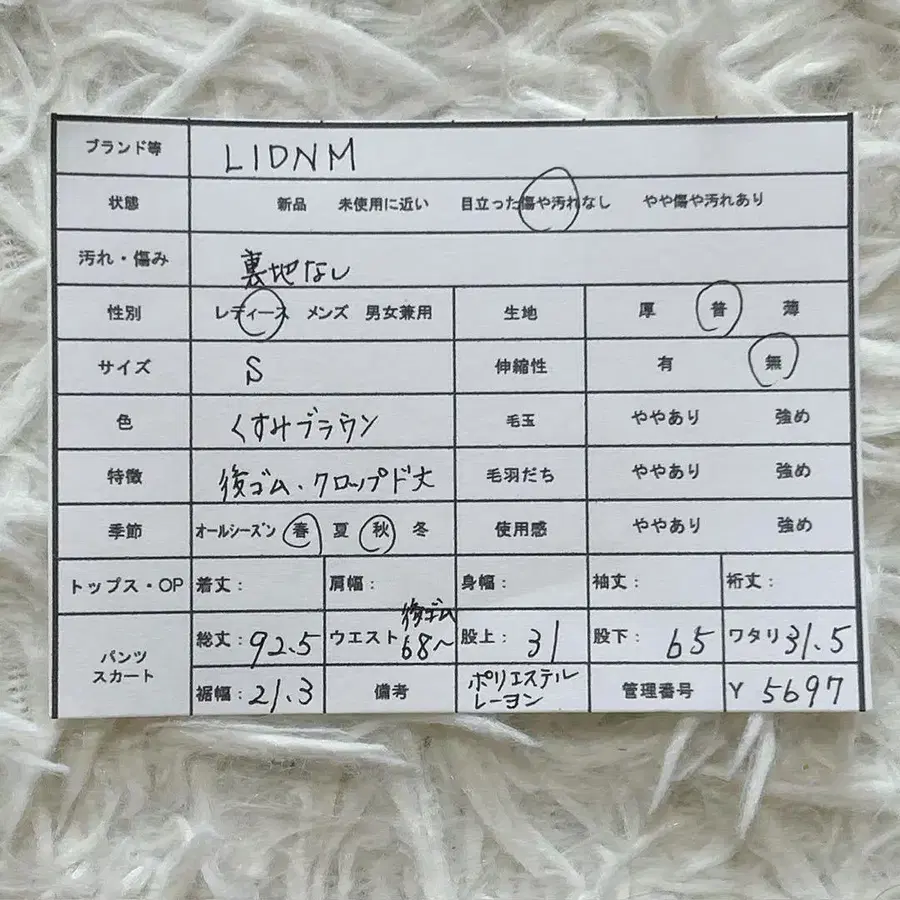 ブランド等 LIDNM
状態 新品 未使用に近い 目立った傷や汚れなし やや傷や汚れあり
汚れ・傷み 裏地なし
性別 レディース メンズ 男女兼用 生地 厚 普 薄
サイズ S 伸縮性 有 無
色 くすみブラウン 毛玉 ややあり 強め
特徴 後ゴム、クロップド丈 毛羽だち ややあり 強め
季節 オールシーズン 春 夏 秋 冬 使用感 ややあり 強め
トップス・OP 着丈: 肩幅: 身幅: 袖丈: 裄丈:
パンツ
スカート
総丈: 92.5 ウエスト 後ゴム 68~ 股上: 31 股下: 65 ワタリ 31.5
裾幅: 21.3 備考 ポリエステル
レーヨン
管理番号 Y 5697